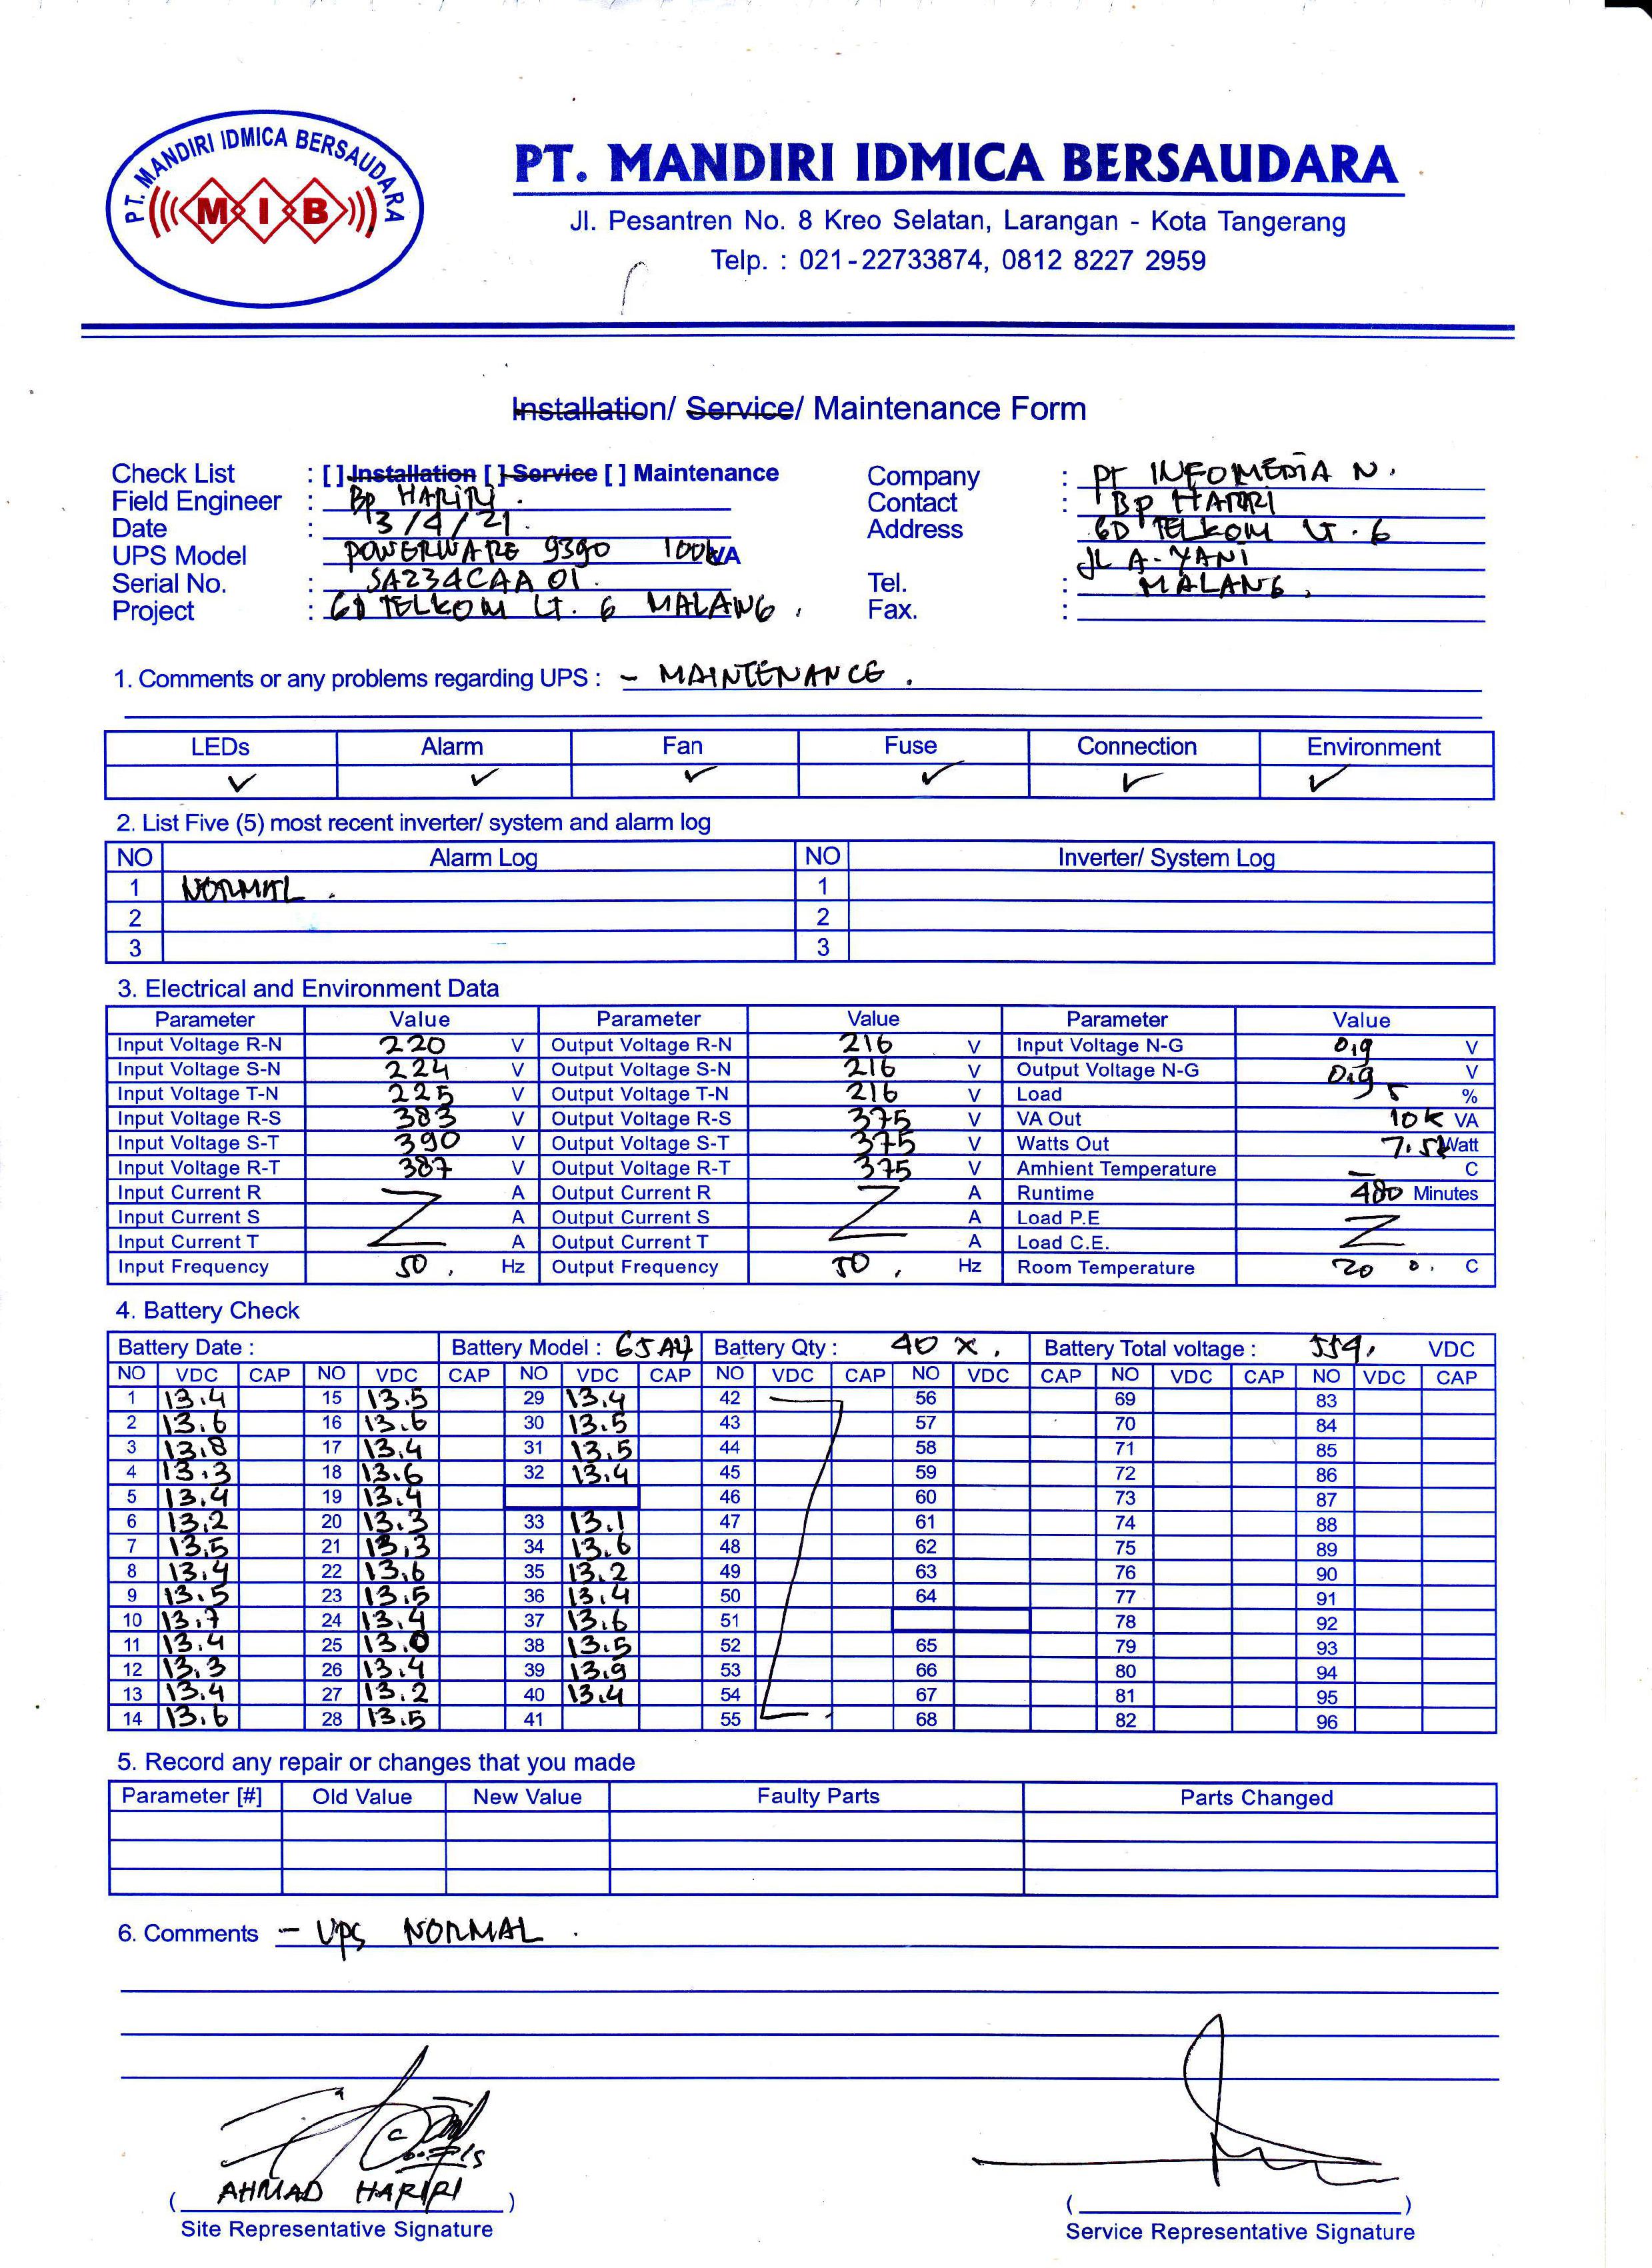 PT. MANDIRI IDMICA BERSAUDARA
MIB
PT. MANDIRI IDMICA BERSAUDARA
Jl. Pesantren No. 8 Kreo Selatan, Larangan - Kota Tangerang
Telp. : 021-22733874, 0812 8227 2959
Installation/ Service/ Maintenance Form
Check List : [ ] Installation [ ] Service [ ] Maintenance
Field Engineer : BP HARIRI.
Date : 13/4/21.
UPS Model POWERWARE 9390 100kVA
Serial No. : SA234CAA01.
Project : GD TELKOM LT. 6 MALANG.
Company : PT INFOMEDIA N.
Contact : BP HARIRI
Address GD TELKOM LT. 6
JL A. YANI
Tel. : MALANG.
Fax. :
1. Comments or any problems regarding UPS : - MAINTENANCE.
LEDs Alarm Fan Fuse Connection Environment
✓ ✓ ✓ ✓ ✓ ✓
2. List Five (5) most recent inverter/ system and alarm log
NO Alarm Log NO Inverter/ System Log
1 NORMAL. 1
2 2
3 3
3. Electrical and Environment Data
Parameter Value Parameter Value Parameter Value
Input Voltage R-N 220 V Output Voltage R-N 216 V Input Voltage N-G 0,9 V
Input Voltage S-N 224 V Output Voltage S-N 216 V Output Voltage N-G 0,9 V
Input Voltage T-N 225 V Output Voltage T-N 216 V Load 5 %
Input Voltage R-S 383 V Output Voltage R-S 375 V VA Out 10k VA
Input Voltage S-T 390 V Output Voltage S-T 375 V Watts Out 7.5k Watt
Input Voltage R-T 387 V Output Voltage R-T 375 V Amhient Temperature - C
Input Current R A Output Current R A Runtime 480 Minutes
Input Current S A Output Current S A Load P.E
Input Current T A Output Current T A Load C.E.
Input Frequency 50. Hz Output Frequency 50. Hz Room Temperature 20 °. C
4. Battery Check
Battery Date : Battery Model : 65AH Battery Qty : 40 X. Battery Total voltage : 554. VDC
NO VDC CAP NO VDC CAP NO VDC CAP NO VDC CAP NO VDC CAP NO VDC CAP NO VDC CAP
1 13.4 15 13.5 29 13.4 42 56 69 83
2 13.6 16 13.6 30 13.5 43 57 70 84
3 13.8 17 13.4 31 13.5 44 58 71 85
4 13.3 18 13.6 32 13.4 45 59 72 86
5 13.4 19 13.4 46 60 73 87
6 13.2 20 13.3 33 13.1 47 61 74 88
7 13.5 21 13.3 34 13.6 48 62 75 89
8 13.4 22 13.6 35 13.2 49 63 76 90
9 13.5 23 13.5 36 13.4 50 64 77 91
10 13.7 24 13.4 37 13.6 51 78 92
11 13.4 25 13.0 38 13.5 52 65 79 93
12 13.3 26 13.4 39 13.9 53 66 80 94
13 13.4 27 13.2 40 13.4 54 67 81 95
14 13.6 28 13.5 41 55 68 82 96
5. Record any repair or changes that you made
Parameter [#] Old Value New Value Faulty Parts Parts Changed
6. Comments - UPS NORMAL.
( AHMAD HARIRI )
Site Representative Signature
( )
Service Representative Signature